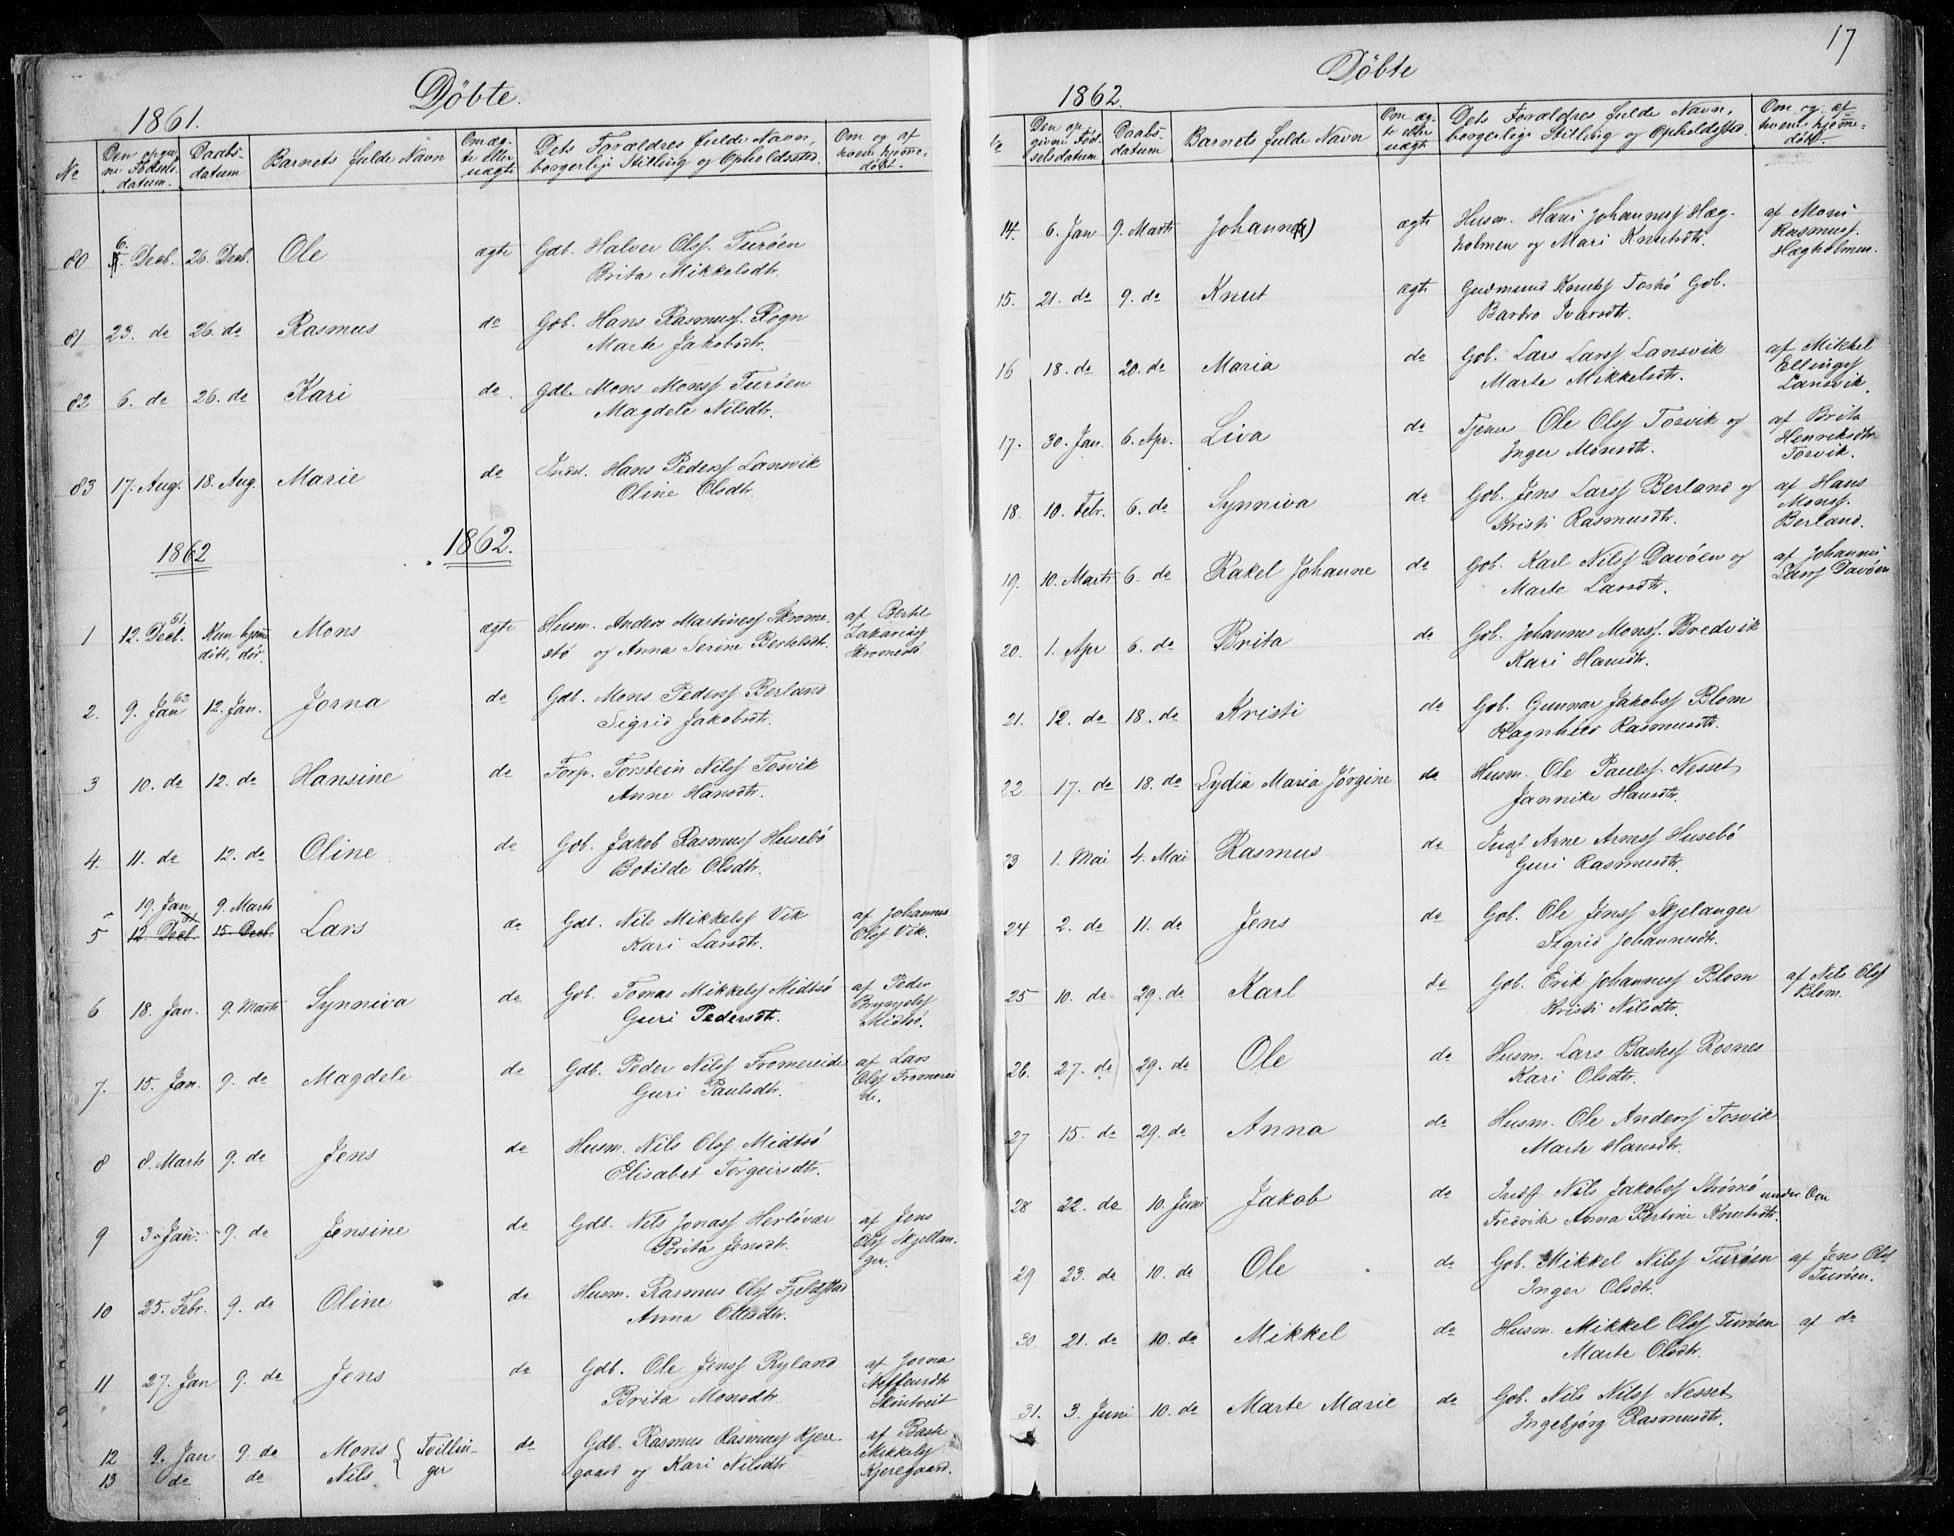 Døbte.
1861.
No
Den opgiv-
ne Fødsels-
datum.
Daabs-
datum
Barnets fulde Navn
Om æg-
te eller
uægte
Dets Forældres fulde Navn,
borgerlige Stilling og Opholdssted.
Om og af
hvem hjemme-
døbt.
80 6. Decb. 26. Decb. Ole ægte Gdb. Halver Olsf. Turøen
Brita Mikkelsdtr.
81 23. do 26. do Rasmus do Gdb. Hans Rasmusf. Rogn
Marte Jakobsdtr.
82 6. do 26. do Kari do. Gdb. Mons Monsf Turøen
Magdele Nilsdtr.
83 17. Aug. 18. Aug. Marie do Hans Pedersf Lansvik
Oline Olsdtr.
1862 1862.
1 12. Decb. 61. Kun hjem
døbt, død. Mons ægte Husm. Anders Martinusf Skrome-
stø og Anna Serine Bertelsdtr. af Bertel
Zakariasf
Skromestø.
2. 9. Jan 62 12. Jan. Jorna do Gdb. Mons Pedersf Berland
Sigrid Jakobsdtr.
3 10. do 12. do Hansine do Forp. Torstein Nilsf Tosvik
Anne Hansdtr.
4. 11. do 12. do Oline do Gdb. Jakob Rasmusf Husebø
Botilde Olsdtr.
5 19. Jan 9. Marts
12. Decb. 15. Decb. Lars do Gdb. Nils Mikkelsf Vik
Kari Larsdtr. af Johannes
Olsf Vik.
6 18. Jan. 9. Marts Synniva do Gdb. Tomas Mikkelsf Midtsø
Guri Pedersdtr. af Peder
Brynjelsf
Midtsø.
7. 15. Jan. 9. do Magdele do Gdb. Peder Nilsf Fromereide
Guri Paulsdtr. af Lars
Olsf Fromerei
de.
8 8. Marts 9. do Jens do Husm. Nils Olsf Midtsø
Elisabet Torgeirsdtr.
9 3. Jan. 9. do Jensine do Gdb. Nils Jonasf Herløvær
Brita Jensdtr. af Jens
Olsf Skjellan-
ger.
10 25. Febr. 9. do Oline do Husm. Rasmus Olsf Fjeldstad
Anna Ottesdtr.
11 27. Jan 9. do Jens do Gdb. Ole Jensf Ryland
Brita Monsdtr. af Jorna
Steffensdtr
12 9. Jan 9. do Mons { Tvillin- do Gdb. Rasmus Rasmusf Kjere-
13 do do Nils ger gaard og Kari Nilsdtr. af Bast
Mikkelsf
Kjeregaard.
17
Døbte
1862.
Den op
givne Fød-
selsdatum
Daabs-
datum
Barnets fulde Navn
Om æg-
te eller
uægte
Dets Forældres fulde Navn,
borgerlige Stilling og Opholdssted.
Om og af
hvem hjemme-
døbt.
14. 6. Jan 9. Marts Johann(e) ægte Husm. Hans Johannesf Hæg-
holmen og Mari Knutsdtr. af Mons
Rasmusf.
Hægholmen.
15. 21. do 9. do Knut ægte Gudmund Knutsf Toskø Gdb.
Barbro Ivarsdtr.
16 18. do 20. do Maria do Gdb. Lars Larsf Lansvik
Marte Mikkelsdtr. af Mikkel
Ellingsf
Lansvik.
17. 30. Jan. 6. Apr. Liva do Tjener Ole Olsf Tosvik og
Inger Monsdtr. af Brita
Henriksdtr
Tosvik.
18. 10. Febr. 6. do Synniva do Gdb. Jens Larsf Berland og
Kristi Rasmusdtr. af Hans
Monsf.
Berland.
19. 10. Marts 6. do Rakel Johanne do Gdb. Karl Nilsf Davøen og
Marte Larsdtr. af Johannes
Larsf Davøen
20. 1. Apr 6. do Brita do Gdb. Johannes Monsf. Bredvik
Kari Hansdtr.
21. 12. do 18. do Kristi do Gdb. Gunnar Jakobsf Blom
Ragnhild Rasmusdtr.
22 17. do 18. do Lydia Maria Jørgine do Husm. Ole Paulsf. Nesset
Jannike Hansdtr.
23 1. Mai 4. Mai Rasmus do Arne Arnesf Husebø
Guri Rasmusdtr.
24 2. do 11. do Jens do Gdb. Ole Jensf Skjelanger
Sigrid Johannesdtr.
25 10. do 29. do Karl do Gdb. Erik Johannesf Blom
Kristi Nilsdtr. af Nils Olsf
Blom.
26. 27. do 29. do Ole do Husm. Lars Bastesf Rosnes
Kari Olsdtr.
27 15. do 29. do Anna do Husm. Ole Andersf Tosvik
Marte Hansdtr.
28 22. do 10. Juni Jakob do Indst Nils Jakobsf Strømø under Oen
Fredvik Anna Bertine Knutsdtr.
29 23. do 10. do Ole do Gdb. Mikkel Nilsf Turøen
Inger Olsdtr. af Jens Olsf
Turøen.
30. 21. do 10. do Mikkel do Husm. Mikkel Olsf Turøen
Marte Olsdtr. af do
31. 3. Juni 10. do Marte Marie do Gdb. Nils Nilsf Nesset
Ingebjørg Rasmusdtr.